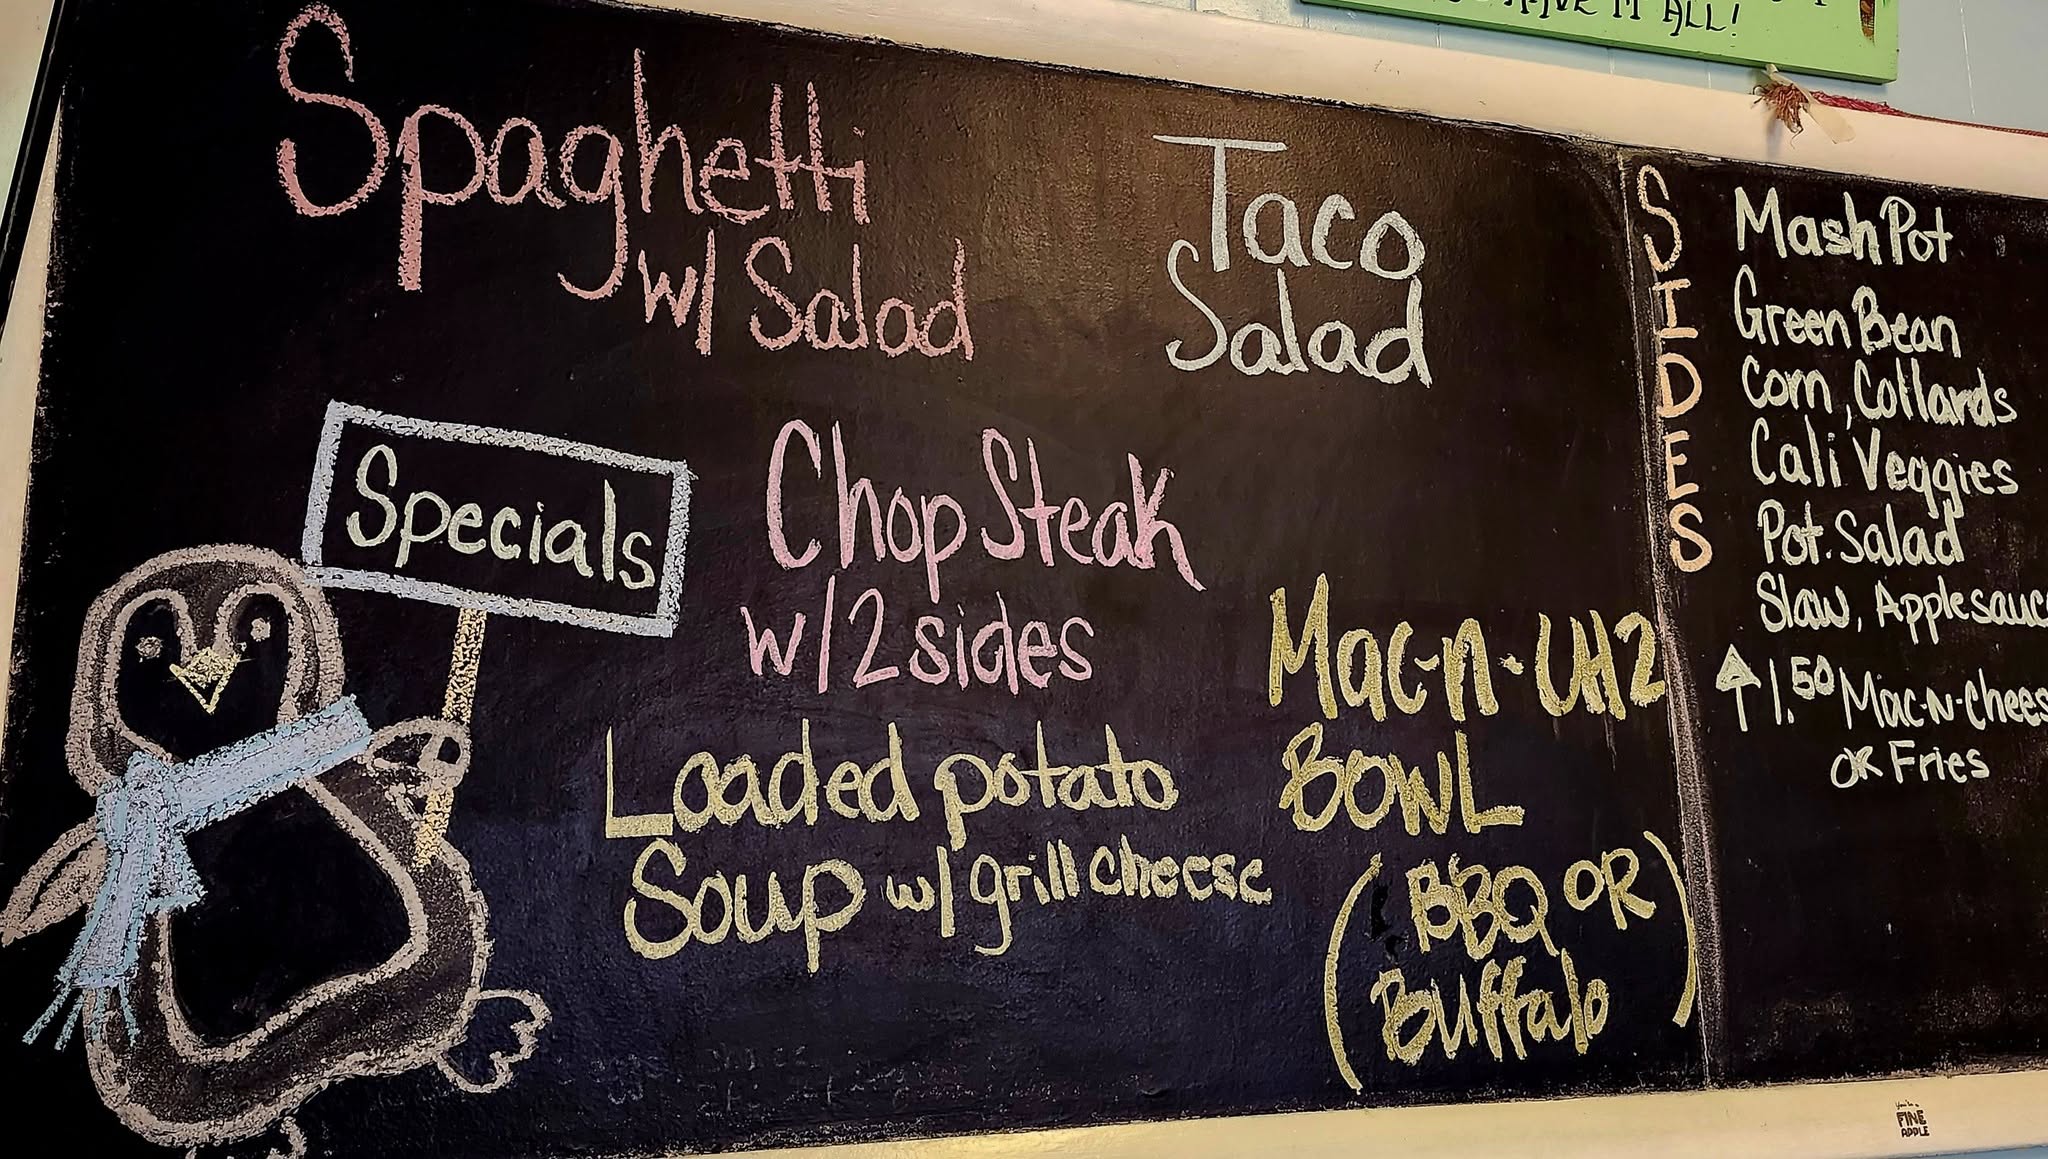 HAVE IT ALL!
Spaghetti
w/ Salad
Taco
Salad
Specials
Chop Steak
w/2 sides
Loaded potato
Soup w/ grill cheese
Mac-n-UH2
BOWL
(BBQ OR
Buffalo)
SIDES
Mash Pot
Green Bean
Corn, Collards
Cali Veggies
Pot. Salad
Slaw, Applesauc
↑ 1.50 Mac-N-Chees
OR Fries
FINE
APPLE